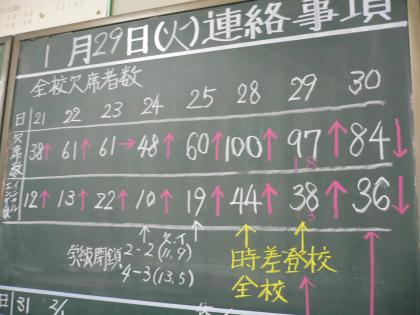 1月29日(火)連絡事項
全校欠席者数
日 21 22 23 24 25 28 29 30
欠席数 38↑ 61↑ 61→ 48↑ 60↑ 100↑ 97↑ 84↓
12↑ 13↑ 22↑ 10↑ 19↑ 44↑ 38↑ 36↓
学級閉鎖 2-2 (11.9)
4-3 (13.5)
時差登校
全校
日 31 2/1